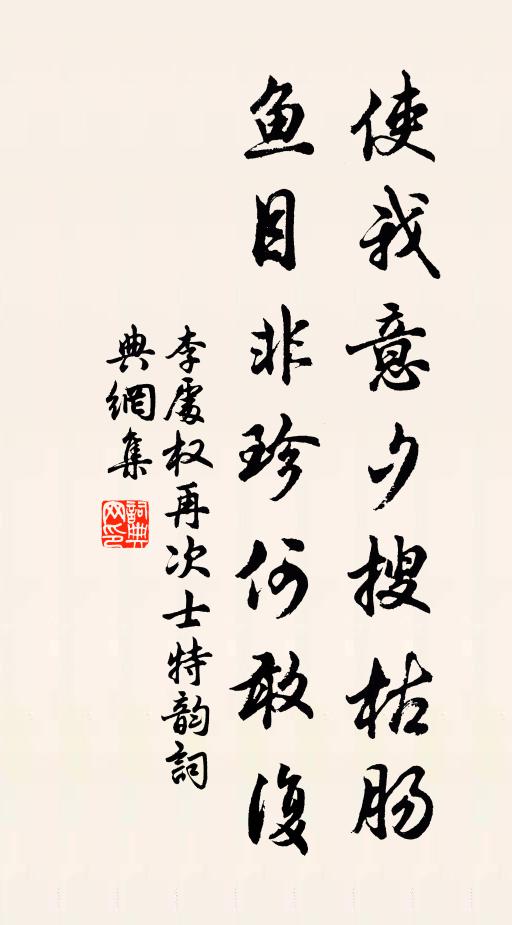 使我意夕搜枯肠
鱼目非珍何敢復
李處权再次士特韵詞
典網集
詞典网印